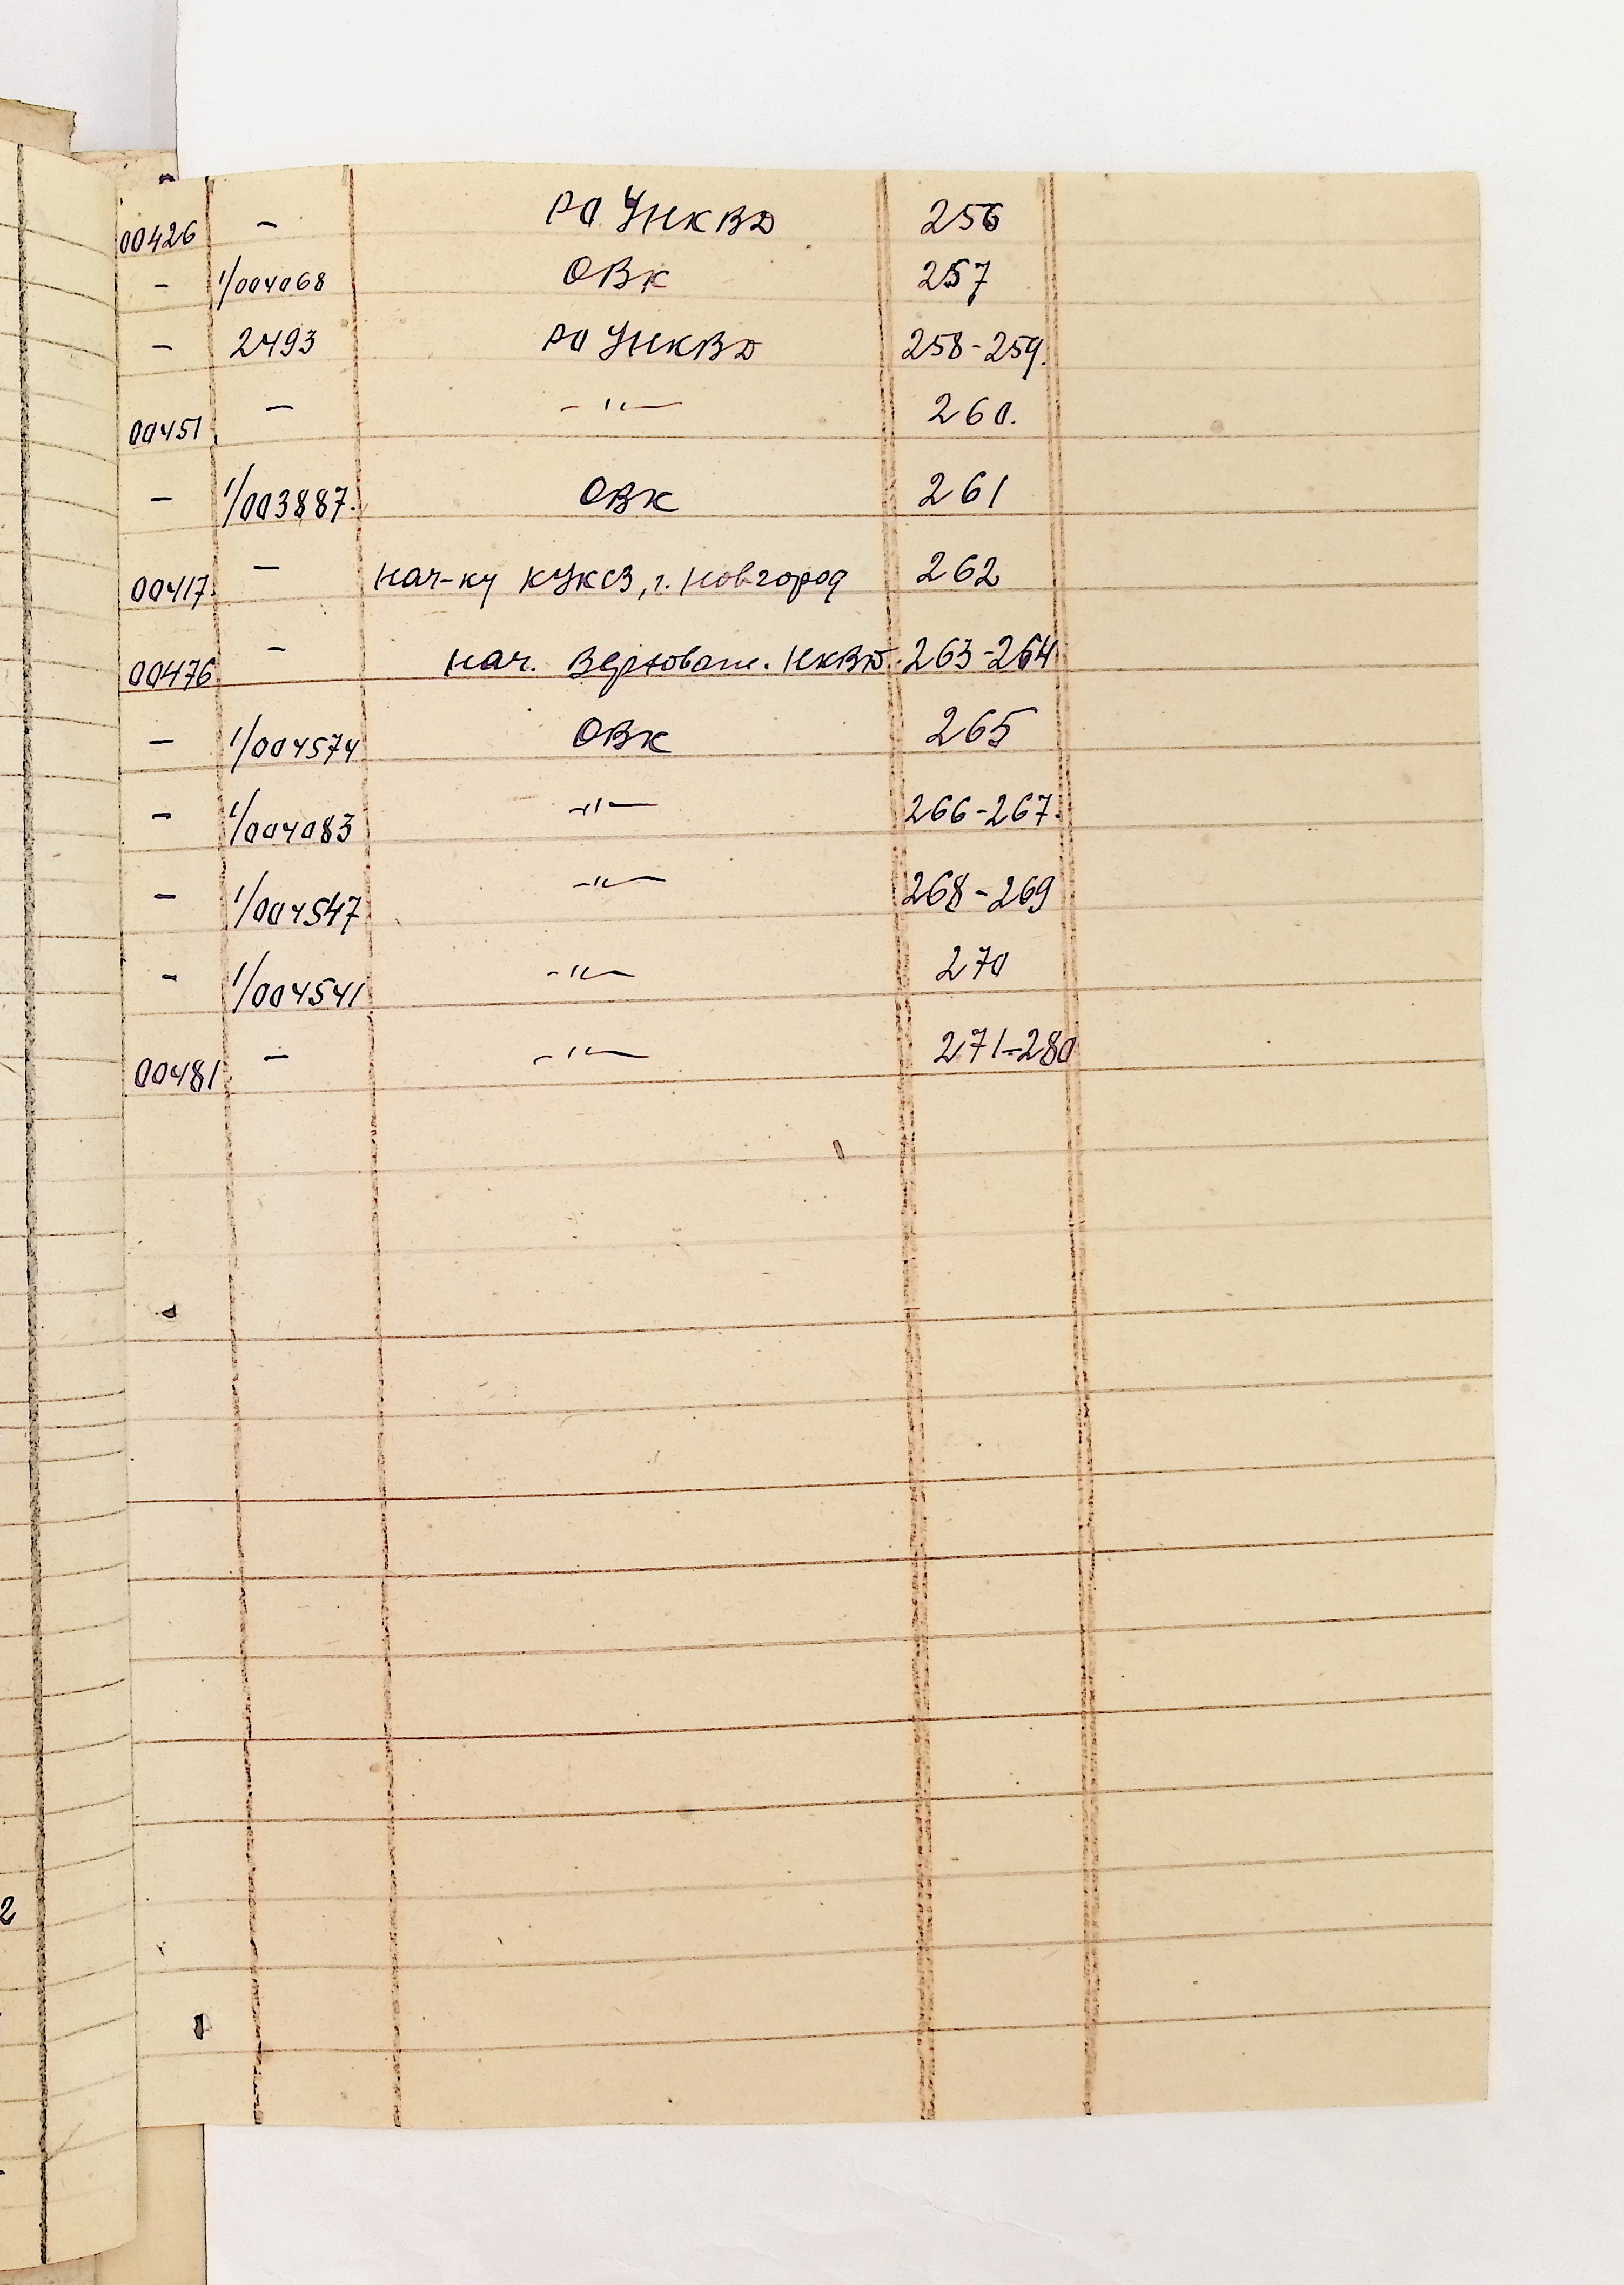 00426 — РО УНКВД 256
— 1/004068 ОВК 257
— 2493 РО УНКВД 258-259.
00451 — —"— 260.
— 1/003887. ОВК 261
00417. — нач-ку КУКСЗ, г. Новгород 262
00476 — нач. НКВД. 263-264
— 1/004574 ОВК 265
— 1/004083 —"— 266-267.
— 1/004547 —"— 268-269
— 1/004541 —"— 270
00481 — —"— 271-280
2